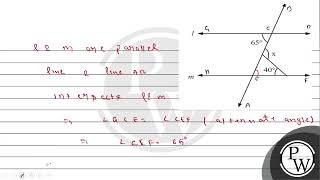 l & m are parallel
line & line AB
intersects l & m
⇒ ∠GCE = ∠CEF (alternate angle)
⇒ ∠CEF = 65°
B
l
G
C
D
65°
x
m
H
40°
E
F
A
PW